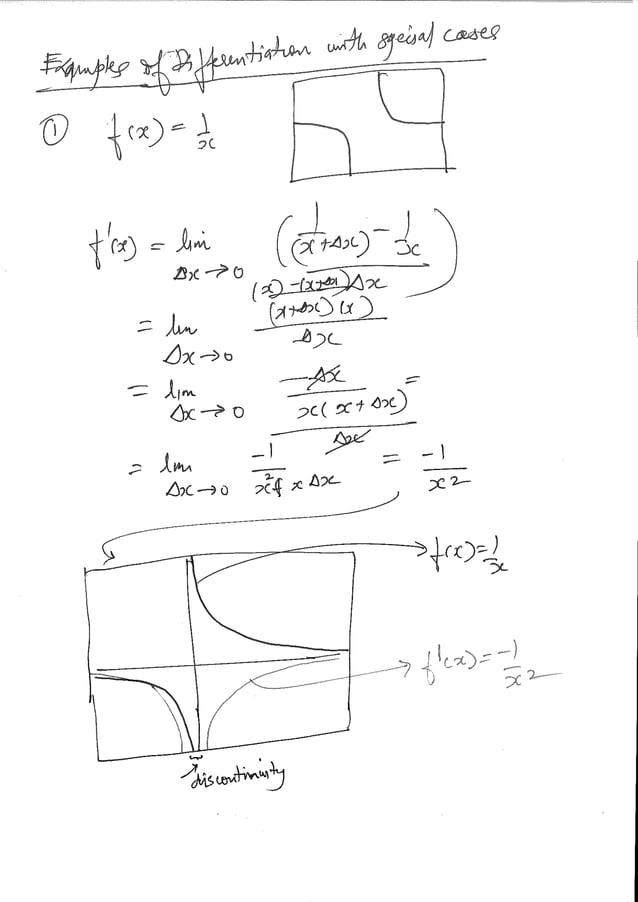 Examples of Differentiation with special cases
① f(x) = 1/x
f'(x) = lim Δx→0 (1/(x+Δx) - 1/x) / Δx
= lim Δx→0 ((x) - (x+Δx) / (x+Δx)(x)) / Δx
= lim Δx→0 (-Δx / x(x + Δx)) / Δx =
= lim Δx→0 -1 / x²+ x Δx = -1 / x2
f(x) = 1/x
f'(x) = -1/x2
discontinuity